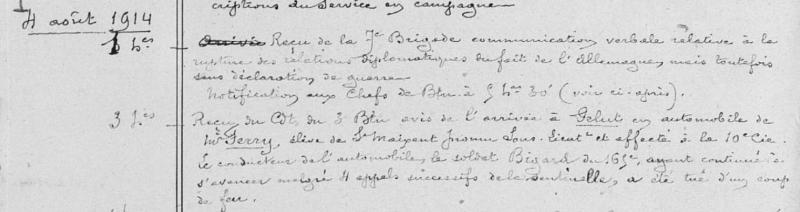 criptions du Service en campagne
4 août 1914
5 hes Arrivée Reçu de la 7e Brigade communication verbale relative à la
rupture des relations diplomatiques du fait de l'Allemagne, mais toutefois
sans déclaration de guerre
Notification aux Chefs de Btn à 5 hes 30' (voir ci-après).
3 hes Reçu du Cdt du 3e Btn avis de l'arrivée à en automobile de
Mr Ferry, élève de St Maixent promu Sous-Lieutt et affecté à la 10e Cie.
Le conducteur de l'automobile, le soldat Bigard du 165e, ayant continué à
s'avancer malgré 4 appels successifs de la Sentinelle, a été tué d'un coup
de feu.